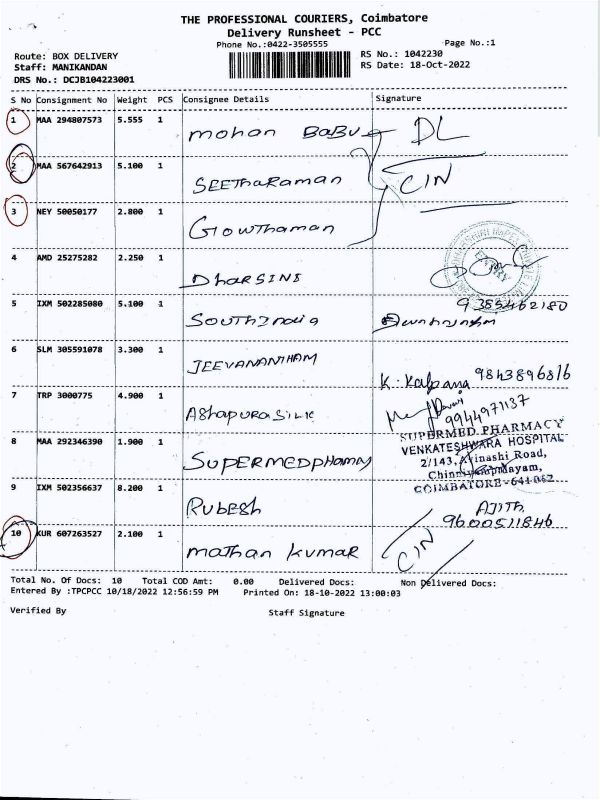 THE PROFESSIONAL COURIERS, Coimbatore
Delivery Runsheet - PCC
Phone No.:0422-3505555
Page No.:1
Route: BOX DELIVERY
RS No.: 1042230
Staff: MANIKANDAN
RS Date: 18-Oct-2022
DRS No.: DCJB104223001
S No Consignment No Weight PCS Consignee Details Signature
1 MAA 294807573 5.555 1 mohan BaBu DL
2 MAA 567642913 5.100 1 SEETHaRaman CIN
3 NEY 50050177 2.800 1 Gowthaman
4 AMD 25275282 2.250 1 DhaRSINI
9385462180
5 IXM 502285080 5.100 1 South India
6 SLM 305591078 3.300 1 JEEVANANTHAM
K. Kalpana 9843896816
7 TRP 3000775 4.900 1 AShapuRa Silk
9944971137
8 MAA 292346390 1.900 1 SUPERMEDPHamm
SUPERMED PHARMACY
VENKATESHWARA HOSPITAL
2/143, Avinashi Road,
COIMBATORE-641 062
9 IXM 502356637 8.200 1 RubeSh
AJITH
9600511846
10 KUR 607263527 2.100 1 mathan kumaR CIN
Total No. Of Docs: 10 Total COD Amt: 0.00 Delivered Docs: Non Delivered Docs:
Entered By :TPCPCC 10/18/2022 12:56:59 PM Printed On: 18-10-2022 13:00:03
Verified By Staff Signature